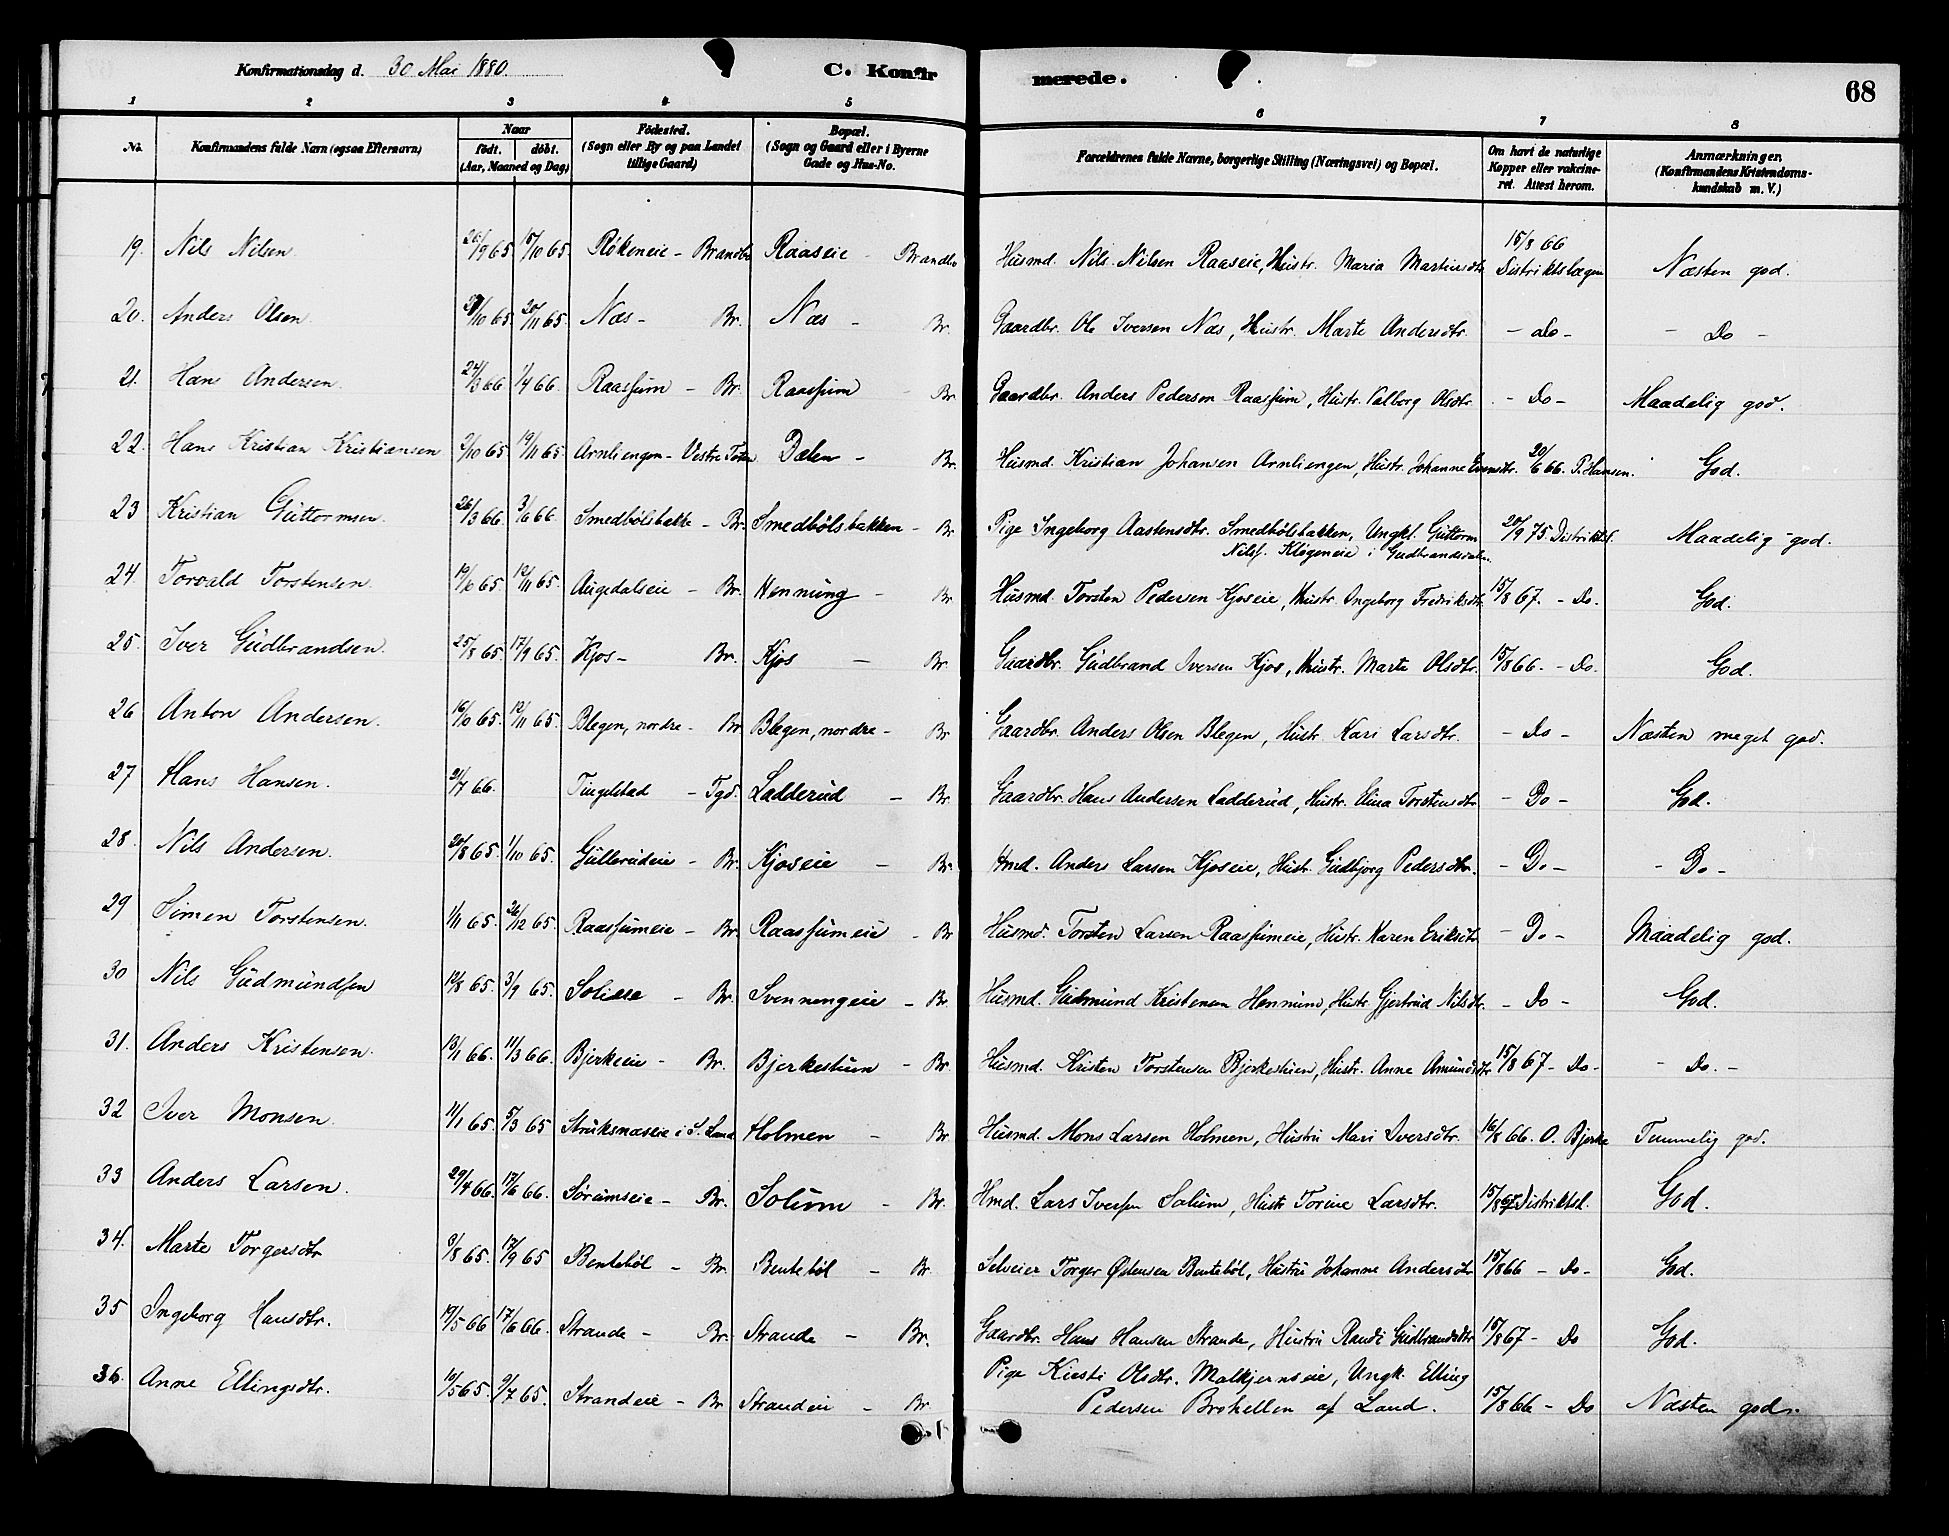 Konfirmationsdag d. 30 Mai 1880.
C. Konfir
merede.
68
1 2 3 4 5 6 7 8
No. Konfirmandens fulde Navn (ogsaa Efternavn) Naar født. døbt. (Aar, Maaned og Dag) Fødested. (Sogn eller By og paa Landet tillige Gaard) Bopæl. (Sogn og Gaard eller i Byerne Gade og Hus-No. Forældrenes fulde Navne, borgerlige Stilling (Næringsvei) og Bopæl. Om havt de naturlige Kopper eller vakcineret. Attest herom. Anmærkninger. (Konfirmandens Kristendomskundskab m. V.)
19. Nils Nilsen 20/9 65. 15/10 65. Røkeneie - Brandbu Raaseie - Brandbu Husmd. Nils Nilsen Raaseie, Hustr. Maria Martinsdtr. 15/8 66 Distriktslægen Næsten god.
20. Anders Olsen /10 65. 20/11 65. Næs - Br. Næs - Br. Gaardbr. Ole Iversen Næs, Hustr. Marte Andersdtr. - do - - Do -
21. Hans Andersen 24/3 66 1/4 66. Raassum - Br. Raassum - Br Gaardbr. Anders Pederson Raassum, Hustr. Valborg Olsdtr. - Do - Maadelig god.
22. Hans Kristian Kristiansen 2/10 65 19/11 65. Arnliengen - Vestre Toten Dalen - Br. Husmd. Kristian Johansen Arnliengen, Hustr. Johanne Evensdtr. 20/6 66. P. Hansen. God.
23 Kristian Guttormsen. 26/3 66. 3/6 66. Smedbølsbakke - Br. Smedbølsbakken - Br Pige Ingeborg Aastensdtr. Smedbølsbakken, Ungkl. Guttorm
Nilss. Kløgeneie i Gudbrandsdalen. 20/9 75. Distriktsl. Maadelig god.
24. Torvald Torstensen. 19/10 65. 12/11 65. Augedalseie - Br. Hennung - Br Husmd. Torsten Pedersen Kjoseie, Hustr. Ingeborg Fredriksdtr. 15/8 67. - Do. God.
25. Iver Gudbrandsen. 25/8 65. 17/9 65. Kjos - Br. Kjos - Br. Gaardbr. Gudbrand Iversen Kjos, Hustr. Marte Olsdtr. 15/8 66. - Do. God.
26 Anton Andersen. 16/10 65. 12/11 65. Blegen, nordre - Br Blegen, nordre - Br Gaardbr. Anders Olsen Blegen, Hustr. Kari Larsdtr. - Do - Næsten meget god.
27 Hans Hansen. 21/7 66. Tingelstad - Tgd. Ladderud - Br Gaardbr. Hans Andersen Ladderud, Hustr. Elina Torstensdtr - Do - God.
28. Nils Andersen. 20/8 65. 1/10 65. Gullerudeie - Br. Kjoseie - Br. Hmd. Anders Larsen Kjoseie, Hustr. Gudbjorg Pedersdtr. - Do - - Do -
29 Simen Torstensen. 1/11 65. 26/12 65. Raassumeie - Br. Raassumeie - Br Husmd. Torsten Larsen Raassumeie, Hustr. Karen Eriksdtr - Do - Maadelig god.
30 Nils Gudmundsen 12/8 65. 3/9 65. - Br. Svenningeie - Br. Husmd. Gudmund Kristensen Hennung, Hustr. Gjertrud Nilsdtr. - Do - God.
31. Anders Kristensen. 13/1 66. 11/3 66. Bjerkeeie - Br. Bjerkestuen - Br Husmd. Kristen Torstensen Bjerkestuen, Hustr. Anne Amundsdtr 15/8 67 - Do - - Do. -
32 Iver Monsen 11/1 65. 5/3 65 Struksnæseie i S. Land Holmen - Br Husmd. Mons Larsen Holmen, Hustru Mari Iversdtr. 16/8 66. O. Bjerke Temmelig god.
33 Anders Larsen. 29/4 66. 17/6 66. Sørumseie - Br. Solum - Br. Hmd. Lars Iversen Solum, Hustr Torine Larsdtr. 15/8 67 Distriktsl. God.
34. Marte Torgersdtr 9/8 65. 17/9 65 Bentebøl - Br. Bentebøl - Br. Selveier Torger Østensen Bentebøl, Hustru Johanne Andersdtr 15/8 66 - Do - God.
35 Ingeborg Hansdtr. 19/5 66 17/6 66. Strande - Br. Strande - Br. Gaardbr. Hans Hansen Strande, Hustru Randi Gudbrandsdtr 15/8 67 - Do God.
36. Anne Ellingsdtr. 10/5 65. 9/7 65. Strandeie - Br Strandeie - Br Pige Kirsti Olsdtr. Malkjernseie, Ungk. Elling
Pedersen Brohellen af Land. 15/8 66 - Do Næsten god.